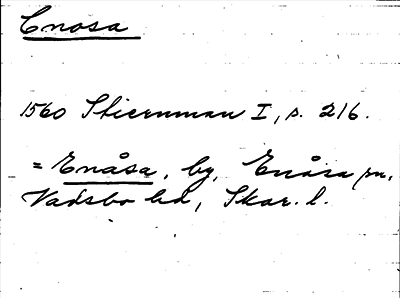 Enosa
1560 Stiernman I, s. 216.
= Enåsa, by, Enåsa sn,
Vadsbo hd, Skar. l.